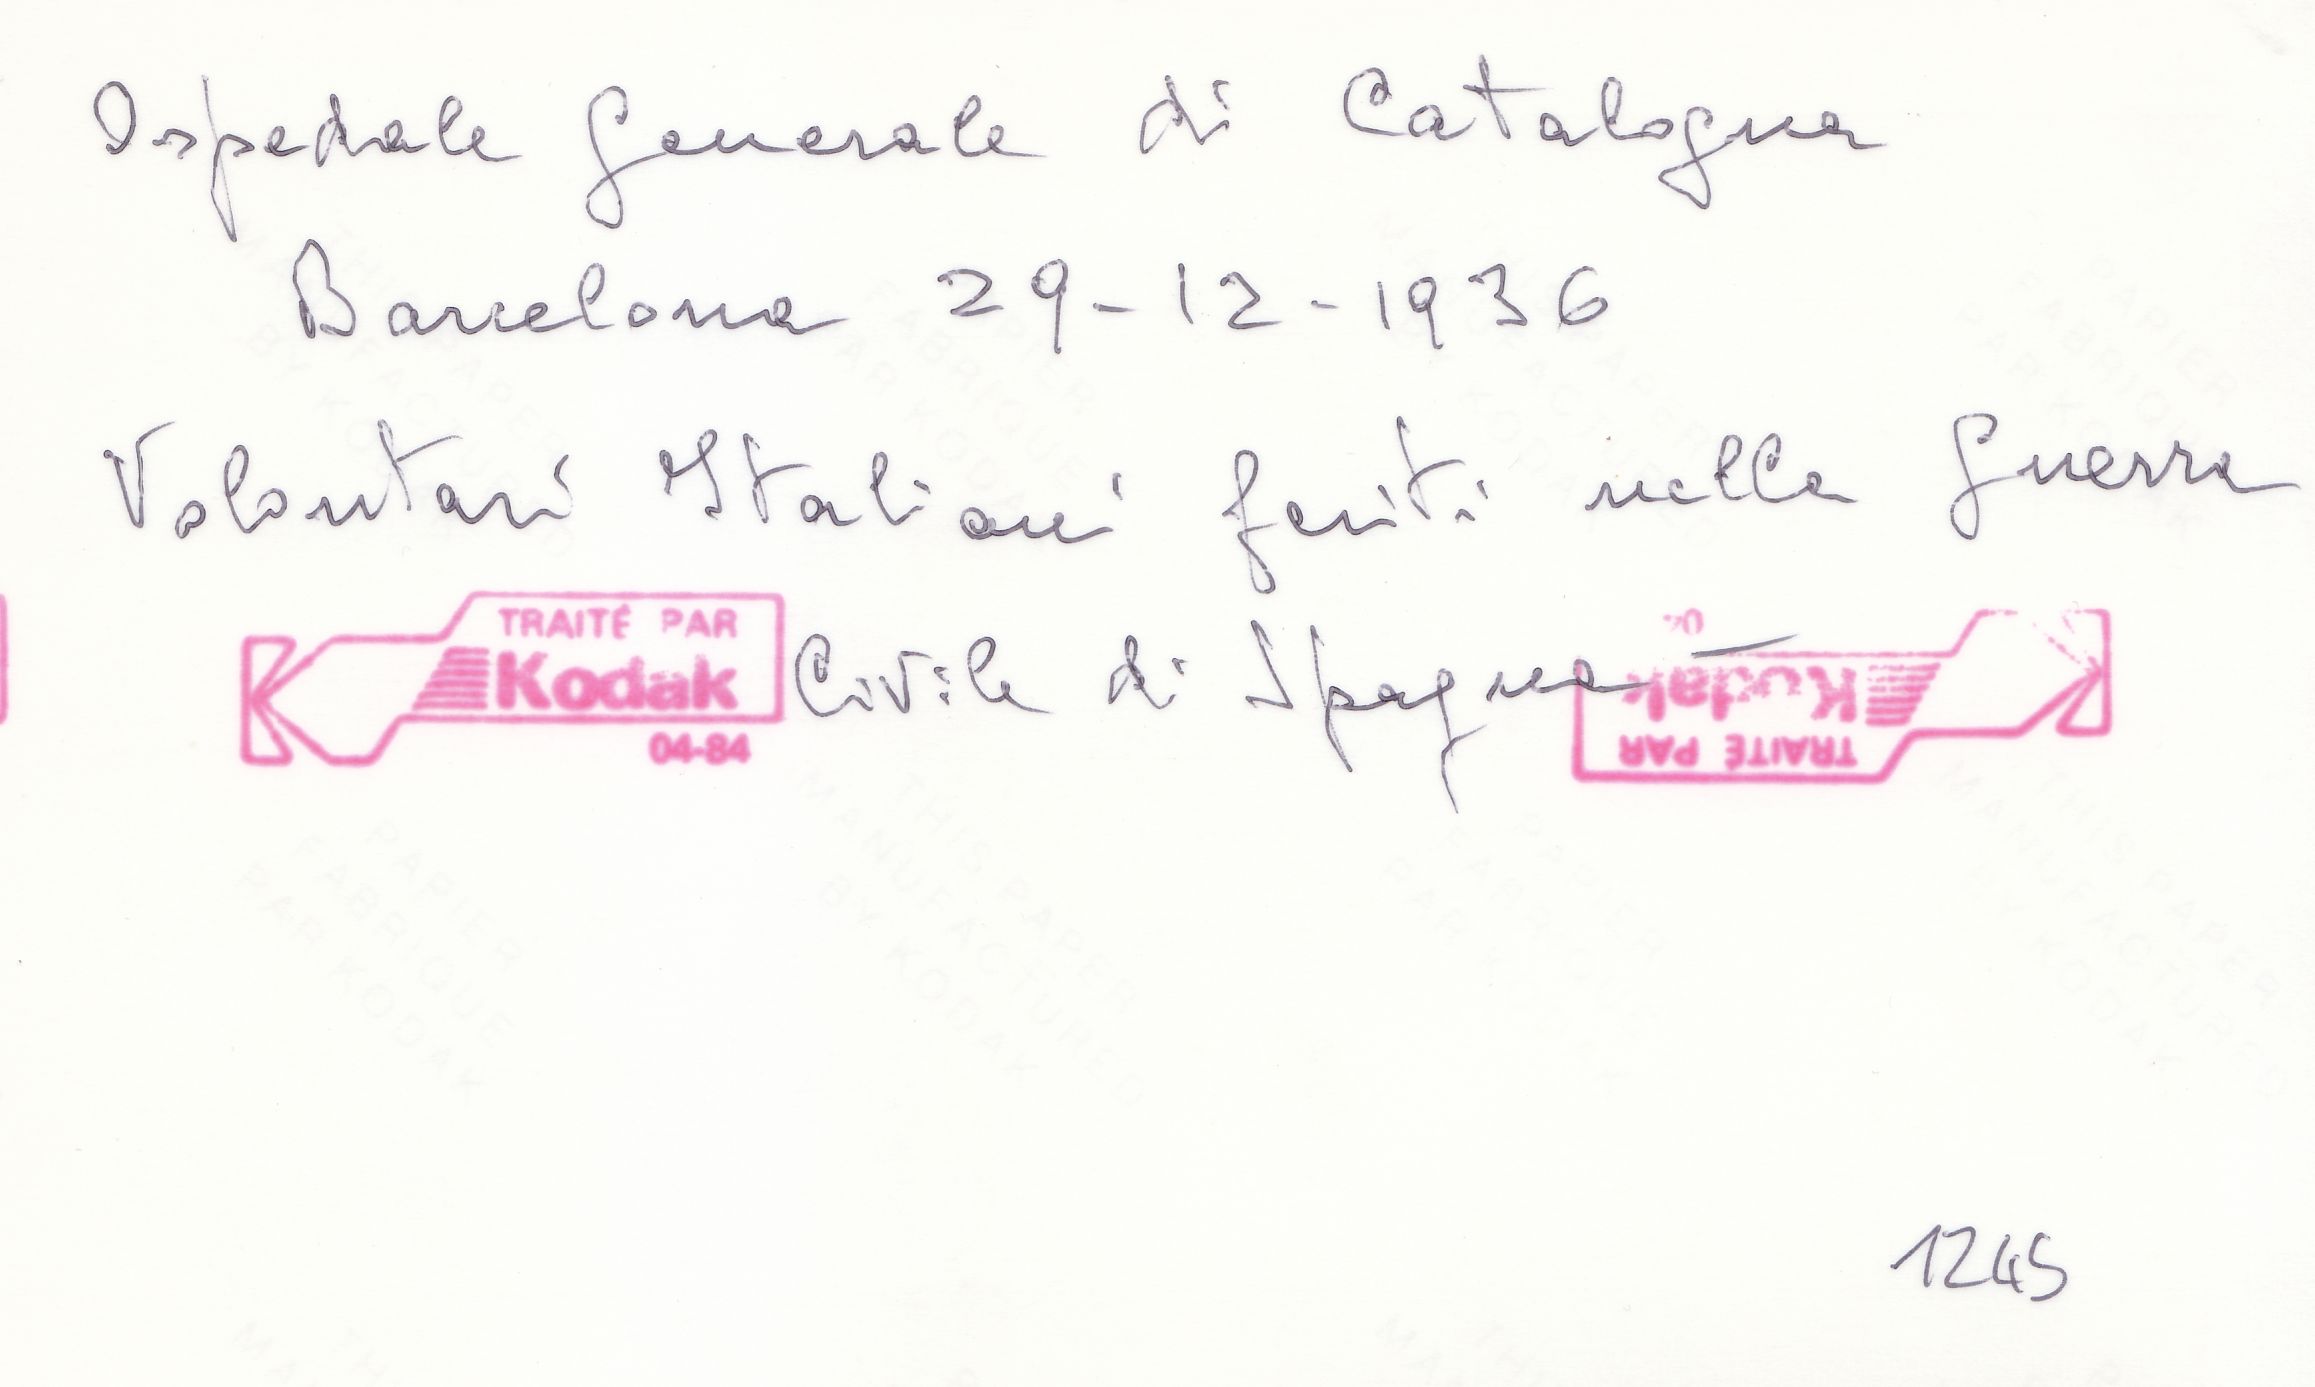 Ospedale Generale di Catalogna
Barcelona 29-12-1936
Volontari Italiani feriti nella Guerra
Civile di Spagna —
TRAITÉ PAR
Kodak
04-84
Kodak
TRAITÉ PAR
THIS PAPER
MANUFACTURED
BY KODAK
PAPIER
FABRIQUE
PAR KODAK
1245